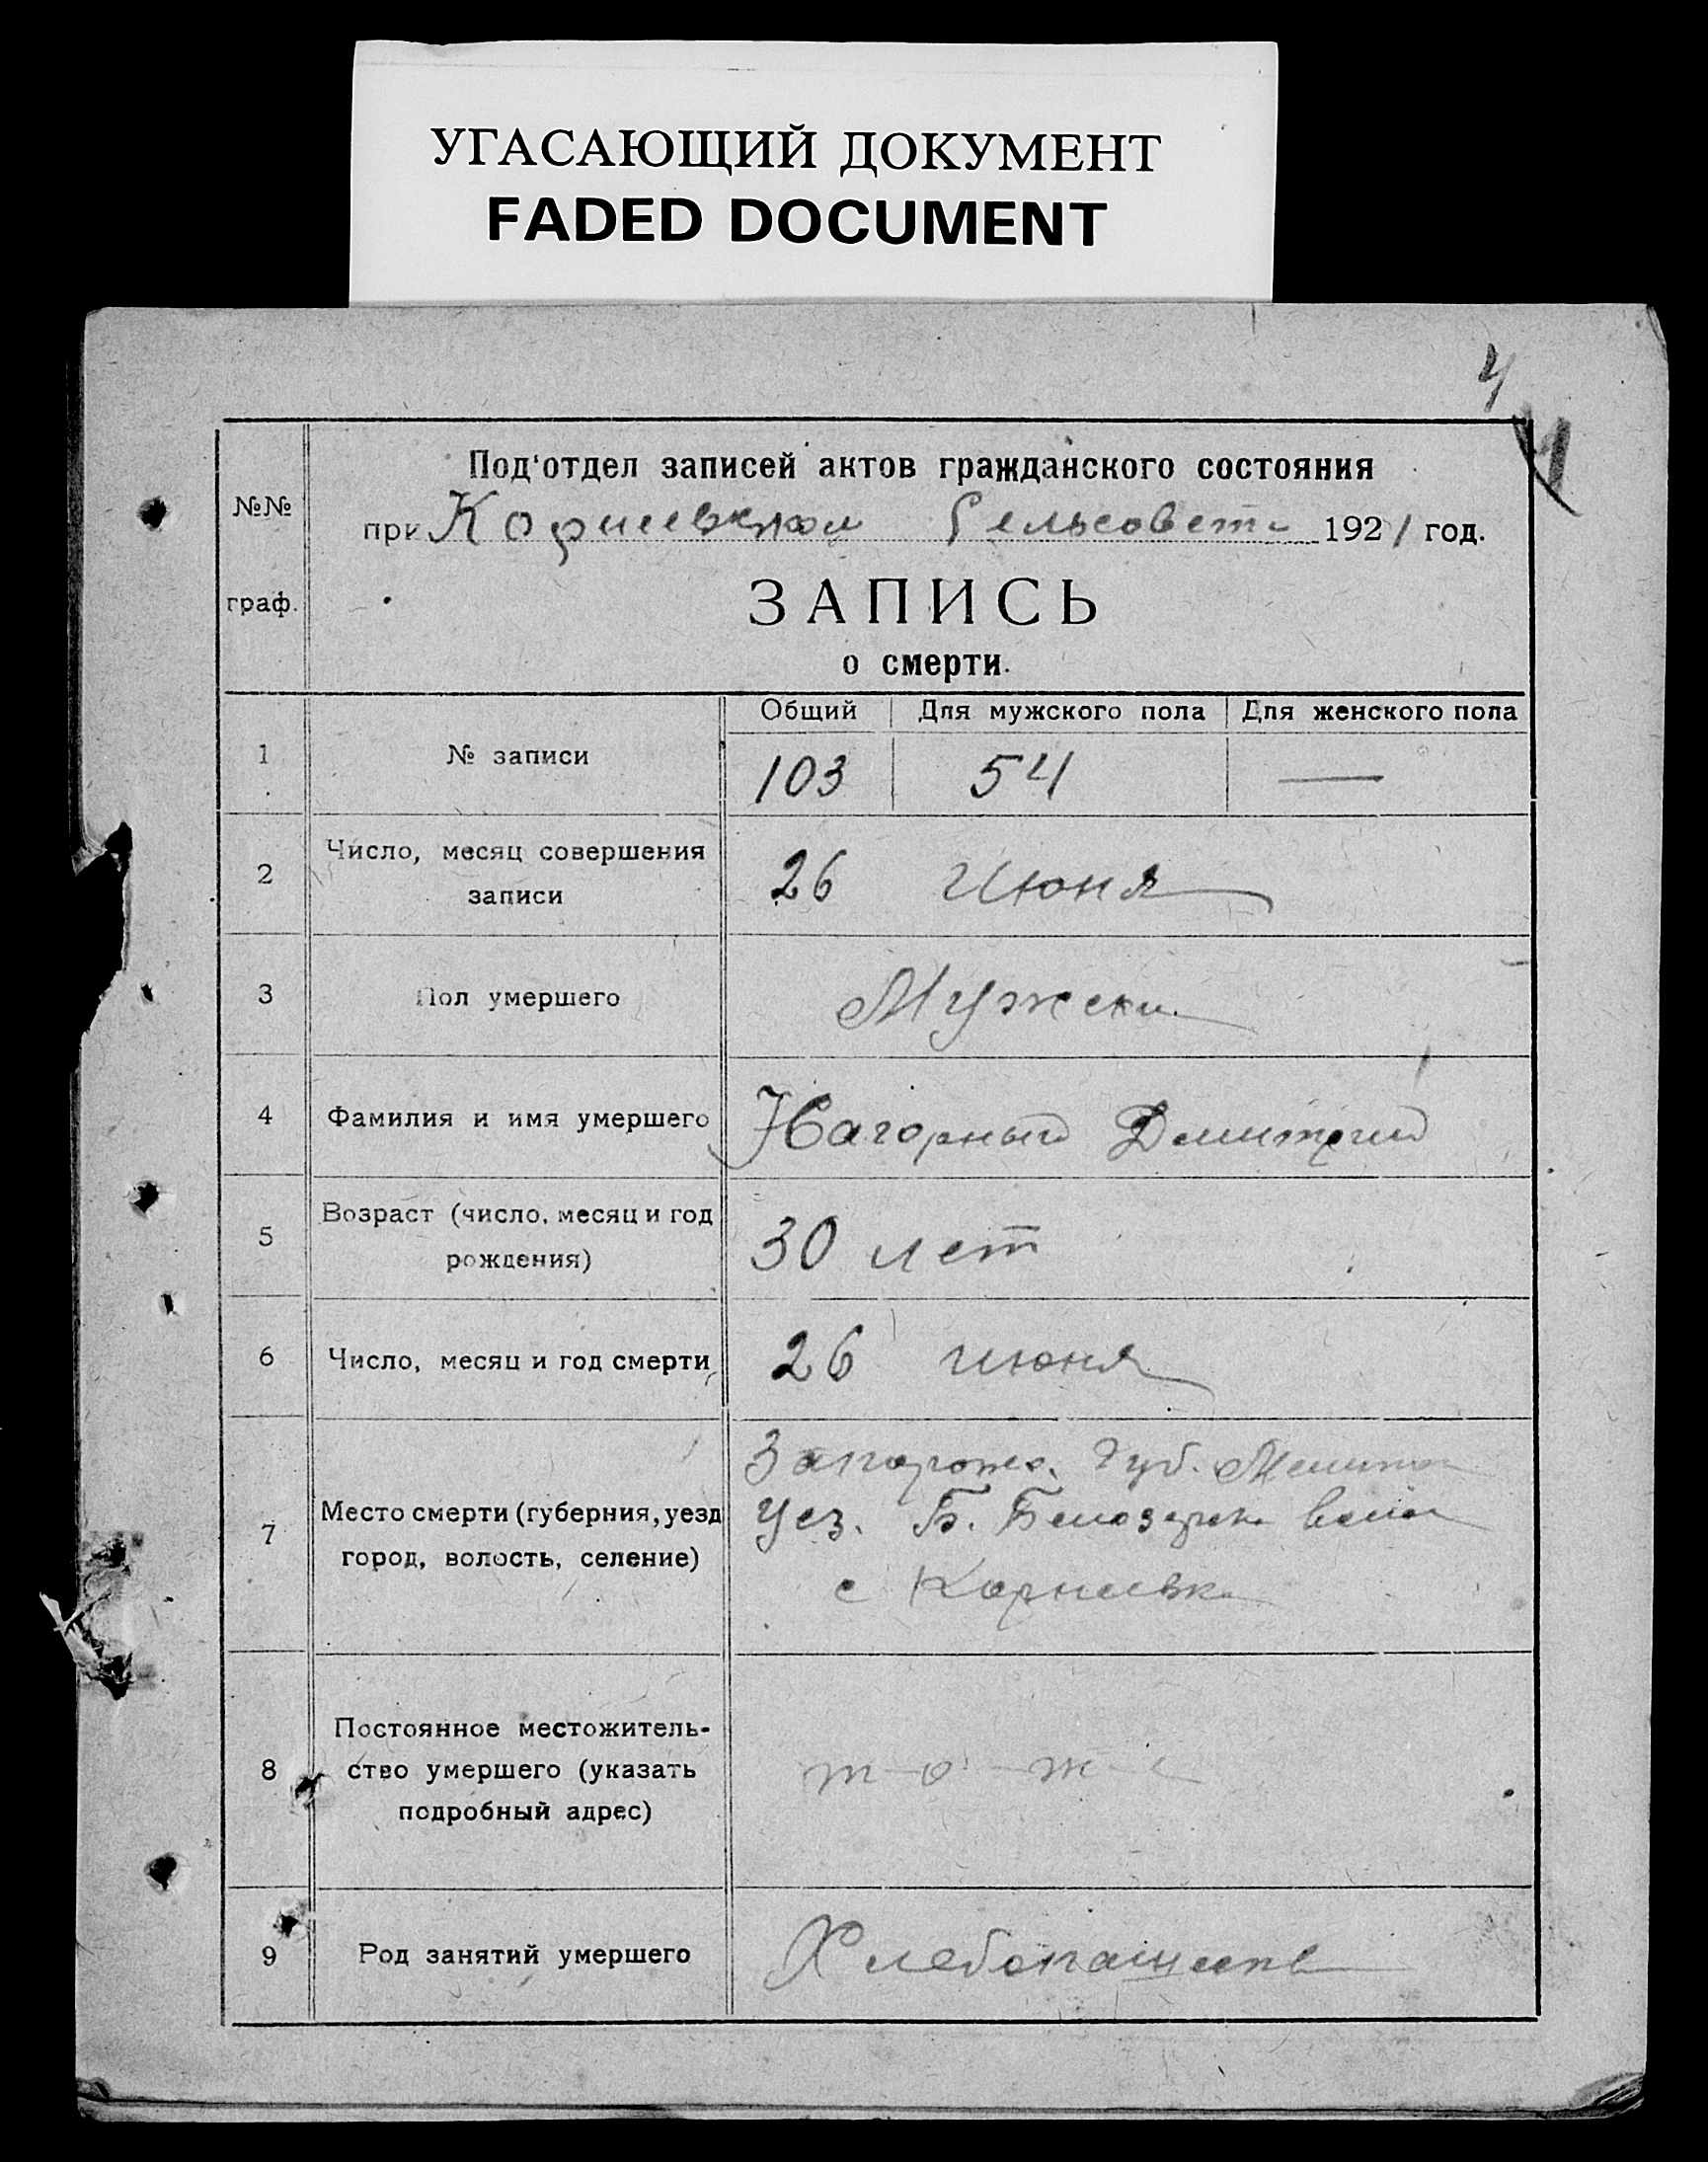 УГАСАЮЩИЙ ДОКУМЕНТ
FADED DOCUMENT
4
№№ граф.
Под'отдел записей актов гражданского состояния
при Корнеевском Сельсовете 1921 год.
ЗАПИСЬ
о смерти.
Общий Для мужского пола Для женского пола
1 № записи 103 54 —
2 Число, месяц совершения
записи
26 Июня
3 Пол умершего Мужски
4 Фамилия и имя умершего Нагорный Дмитрий
5 Возраст (число, месяц и год
рождения)
30 лет
6 Число, месяц и год смерти 26 июня
7 Место смерти (губерния, уезд
город, волость, селение)
Запорож. Губ. Мелитоп
Уез. Б. Белозерск волос
с Корнеевк
8 Постоянное местожитель-
ство умершего (указать
подробный адрес)
то-же
9 Род занятий умершего Хлебопашеств